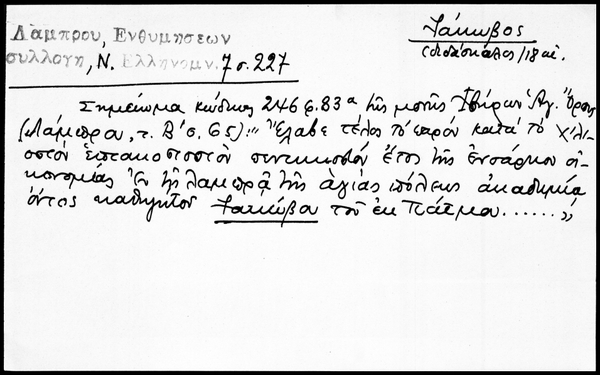 Λάμπρου, Ενθυμήσεων
συλλογή, Ν. Ελληνομν. 7 σ. 227
Ἰάκωβος
(διδάσκαλος/18 αἰ.
Σημείωμα κώδικος 246 φ. 83α τῆς μονῆς Ἰβήρων Ἁγ. Ὄρους
(Λάμπρου, τ. Β' σ. 65): "Ἔλαβε τέλος τὸ παρὸν κατὰ τὸ χιλι-
οστὸν ἑπτακοσιοστὸν πεντηκοστὸν ἔτος τῆς ἐνσάρκου οἰ-
κονομίας ἐν τῇ λαμπρᾷ τῆς ἁγίας πόλεως ἀκαδημίᾳ
ὄντος καθηγητοῦ Ἰακώβου τοῦ ἐκ Πάτμου......"